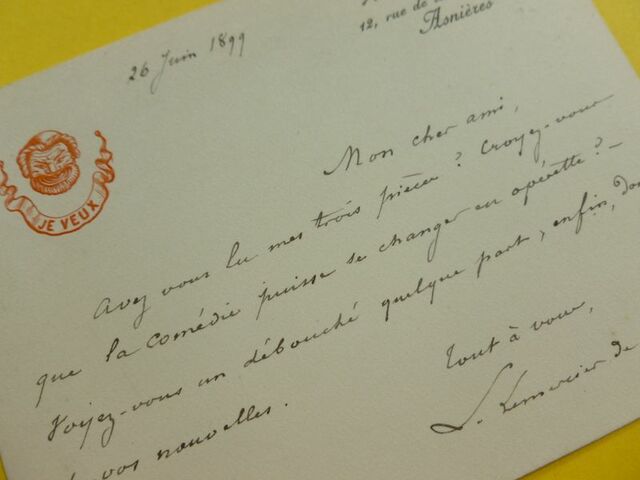 12, rue de
Asnières
26 Juin 1899
JE VEUX
Mon cher ami,
Avez vous lu mes trois pièces ? Croyez-vous
que la comédie puisse se changer en opérette ? -
Voyez-vous un débouché quelque part, enfin,
vos nouvelles.
Tout à vous,
L. Lemercier de